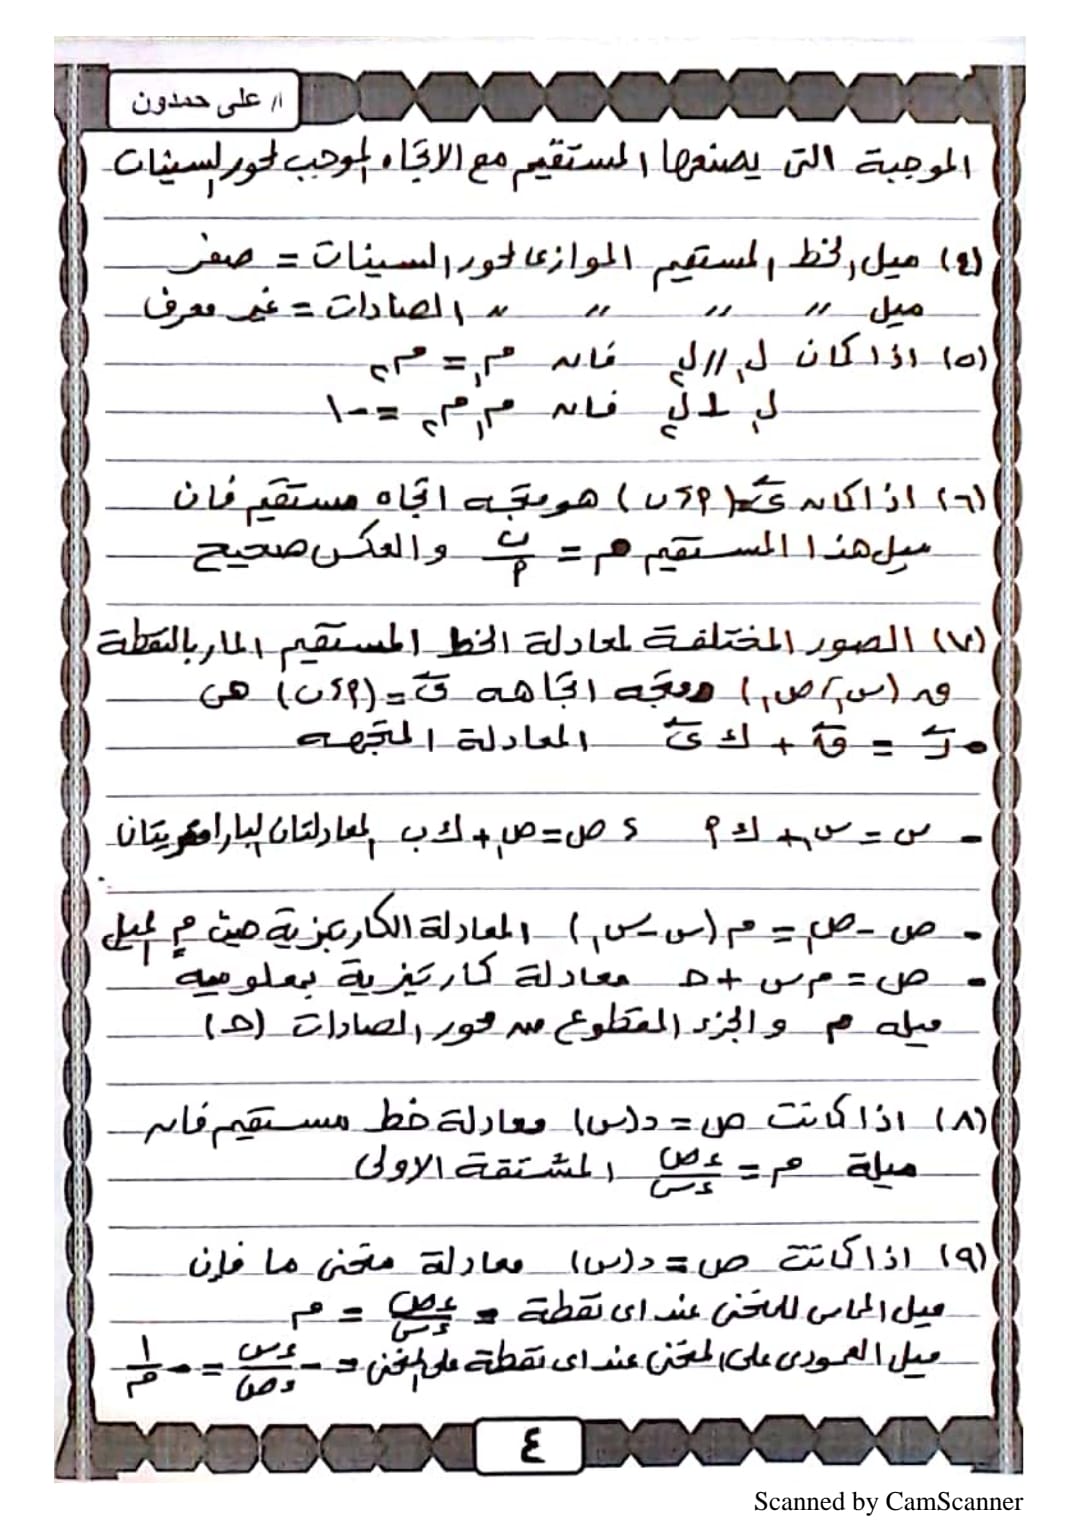 ا/ على حمدون
الموجبة التى يصنعها المستقيم مع الاتجاه الموجب لمحور السينات
(٤) ميل الخط المستقيم الموازى لمحور السينات = صفر
ميل 〃 〃 〃 〃 الصادات = غير معرف
(٥) اذا كان ل₁ // ل₂ فان م₁ = م₂
ل₁ ⊥ ل₂ فان م₁ م₂ = -١
(٦) اذا كان ى = (٩، ب) هو متجه اتجاه مستقيم فان
ميل هذا المستقيم م = ب/٩ والعكس صحيح
(٧) الصور المختلفة لمعادلة الخط المستقيم المار بالنقطة
ن (س₁، ص₁) ومتجه اتجاهه ى = (٩، ب) هى
• ر = ن + ك ى المعادلة المتجهه
- س = س₁ + ك ٩ ، ص = ص₁ + ك ب المعادلتان البارامتريتان
- ص - ص₁ = م (س - س₁) المعادلة الكارتيزية حيث م الميل
- ص = م س + حـ معادلة كارتيزية بمعلومية
ميله م والجزء المقطوع من محور الصادات (حـ)
(٨) اذا كانت ص = د(س) معادلة خط مستقيم فان
ميلة م = ءص/ءس المشتقة الاولى
(٩) اذا كانت ص = د(س) معادلة منحنى ما فإن
ميل المماس للمنحنى عند اى نقطة = ءص/ءس = م
ميل العمودى على المنحنى عند اى نقطة على المنحنى = - ءس/ءص = - ١/م
٤
Scanned by CamScanner